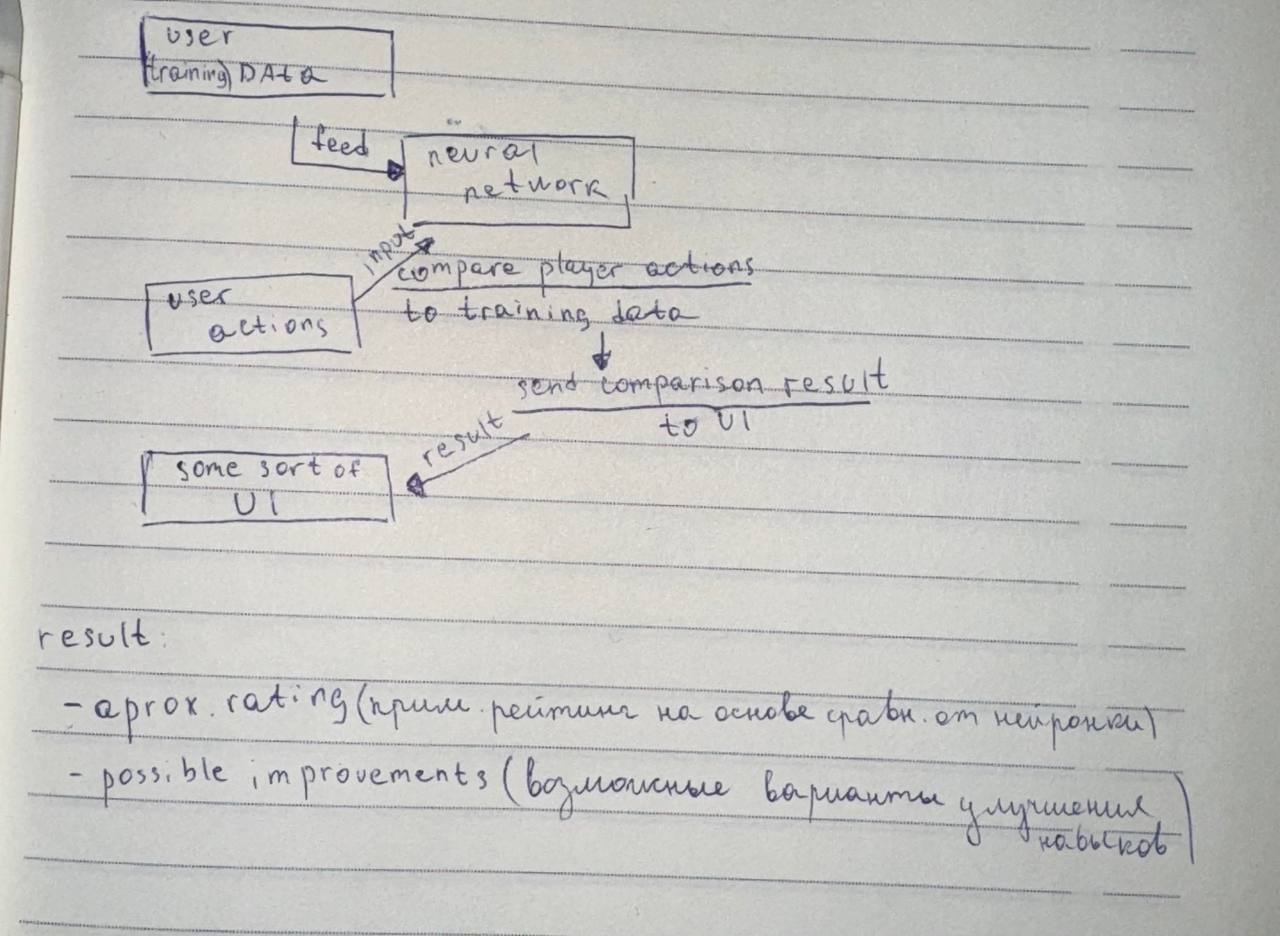 user
(training) DATA
feed
neural
network
input
compare player actions
to training data
user
actions
send comparison result
to UI
result
some sort of
UI
result:
- aprox. rating (прим. рейтинг на основе сравн. от нейронки)
- possible improvements (возможные варианты улучшения
навыков)